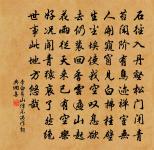 石徑入丹壑松門閉青
苔閒階有鳥迹禪室無
人開窺窗見白拂挂壁
生塵埃使我空歎息欲
去仍裴回香雲徧山起
花雨從天來已有空樂
好況聞青猿哀了然絕
世事此地方悠哉
李白尋山僧不遇作